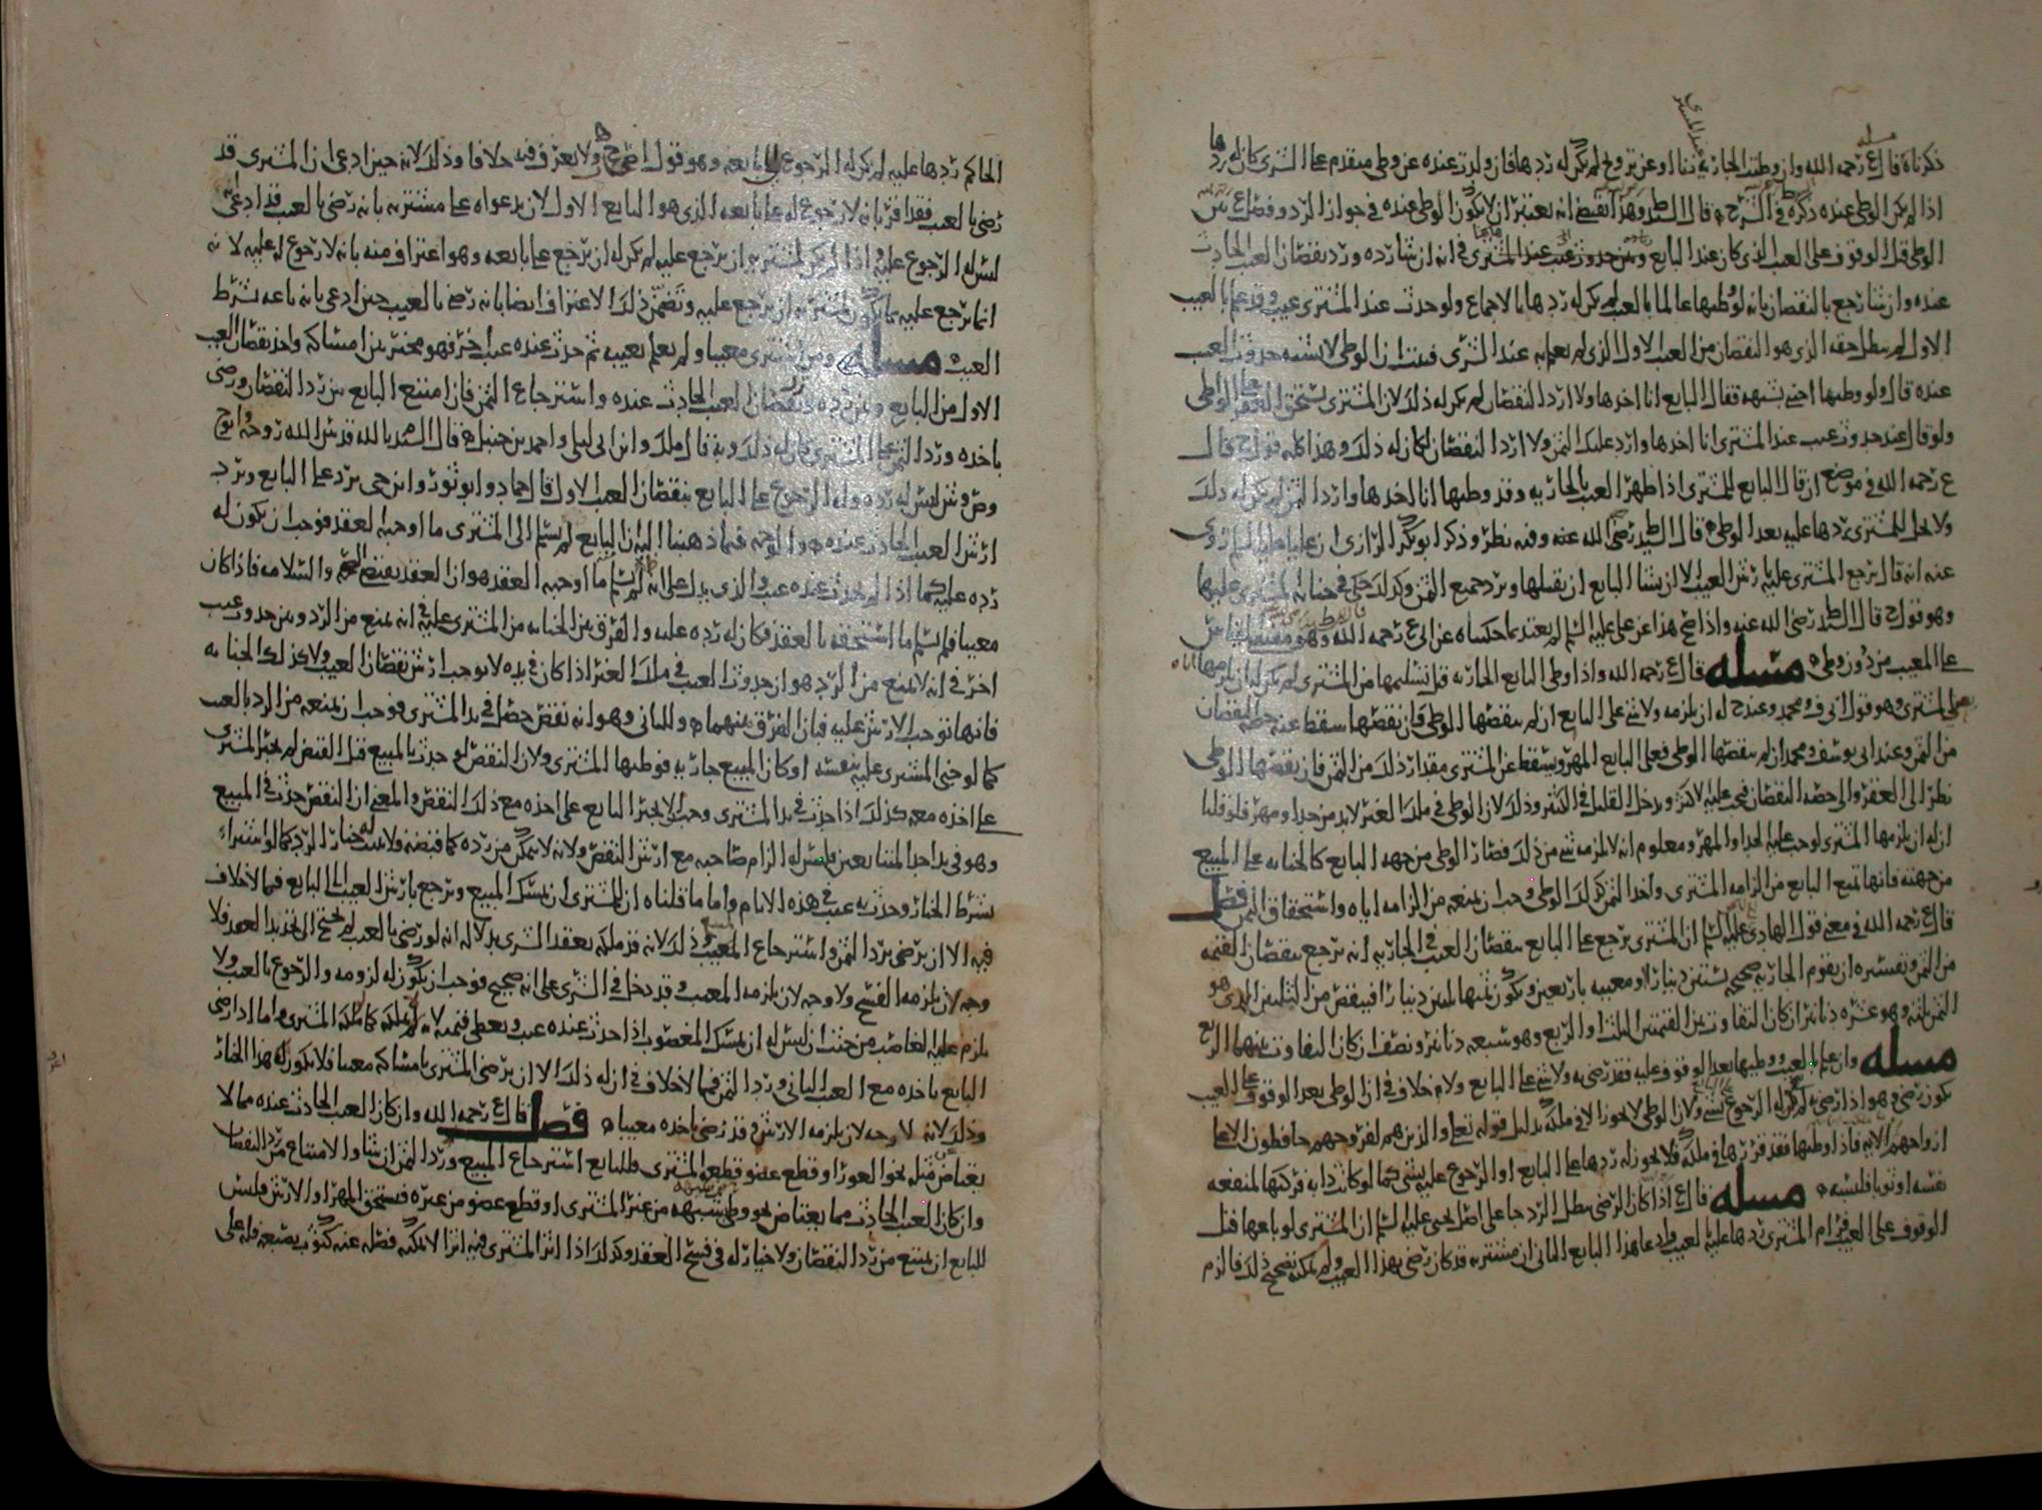 ذكرناه قال ع رحمه الله وان وطئت الجارية بزنا او عن تزويج لم يكن له ردها فان ولدت عنده عن وطئ متقدم على الشرى كان له ردها
اذا لم يكن الوطى عنده ذكره في الشرح قال السيد وهذا يقتضي انه يعتبر ان لا يكون الوطى عنده في جواز الرد وفصل ع بين
الوطى قبل الوقوف على العيب الذي كان عند البايع وبين حدوث عيب عند المشترى في انه ان شا رده ورد نقصان العيب الحادث
عنده وان شا رجع بالنقصان بانه لو وطيها عالما بالعيب لم يكن له ردها بالاجماع ولو حدث عند المشترى عيب وقد علم بالعيب
الاول لم يبطل حقه الذي هو النقصان من العيب الاول الذي لم يعلم به عند الشرى فبينت ان الوطى لا يشبه حدوث العيب
عنده قال ولو وطيها اجنبي بشبهة فقال البايع انا اخذها ولا ارد النقصان لم يكن له ذلك لان المشترى يستحق العقر على الواطى
ولو قال عند حدوث عيب عند المشترى انا اخذها وارد عليك الثمن ولا ارد النقصان لكان له ذلك وهذا كله قول ح قال
ع رحمه الله في موضع ان قال البايع للمشترى اذا ظهر العيب بالجارية وقد وطيها انا اخذها وارد الثمن لم يكن له ذلك
ولا يحل للمشترى ردها عليه بعد الوطى قال السيد رضي الله عنه وفيه نظر وذكر ابو بكر الرازي ان عليا عليه السلم روى
عنه انه قال يرجع المشترى عليه بارش العيب الا ان يشا البايع ان يقبلها ويرد جميع الثمن وكذلك حكى في جناية المشترى عليها
وهو قول ح قال السيد رضي الله عنه واذا صح هذا عن علي عليه السلم لم يعتد بما حكيناه عن ابي ع رحمه الله وهو
على المعيب من دون وطى مسلة قال ع رحمه الله واذا وطى البايع الجارية قبل تسليمها من المشترى لم يكن له ان يلزمها اياه
على المشترى وهو قول ابي ف ومحمد وعند ح له ان يلزمه ولا شي على البايع ان لم ينقصها الوطى فان نقصها سقط عنه حصة النقصان
من الثمن وعند ابي يوسف ومحمد ان لم ينقصها الوطى فعلى البايع المهر ويسقط عن المشترى مقدار ذلك من الثمن فان نقصها الوطى
نظر الى العقر والى حصة النقصان فيجب عليه الاكثر ويدخل القليل في الكثير وذلك لان الوطى في ملك الغير لا بد من حد او مهر فلو قلنا
ان له ان يلزمها المشترى لوجب عليه الحد او المهر ومعلوم انه لا يلزمه شي من ذلك فصار الوطى من جهة البايع كالجناية على المبيع
من جهته فانها تمنع البايع من الزامه المشترى واخذ الثمن كذلك الوطى وجب ان يمنعه من الزامه اياه واستحقاق الثمن فصل
قال ع رحمه الله في معنى قول الهادي عليه السلم ان المشترى يرجع على البايع بنقصان العيب في الجارية انه يرجع بنقصان القيمة
من الثمن وتفسيره ان يقوم الجارية صحيحه بستين دينارا ومعيبه باربعين ويكون ثمنها ثلثين دينارا فينقص من الثلثين الذي هو
الثمن ثلثه وهو عشره دنانير ان كان التفاوت بين القيمتين الثلث او الربع وهو سبعه دنانير ونصف ان كان التفاوت بينهما الربع
مسلة وان علم بالعيب ووطيها بعد الوقوف عليه فقد رضي به ولا شي على البايع ولا خلاف في ان الوطى بعد الوقوف على العيب
يكون رضى وهو اذا رضي به لم يكن له الرجوع بشي ولان الوطى لا يجوز الا في ملكه بدليل قوله تعلى والذين هم لفروجهم حافظون الا على
ازواجهم الايه فاذا وطيها فقد قررها في ملكه فلا يجوز له ردها على البايع او الرجوع عليه بشي كما لو كانت دابه فركبها لمنفعه
نفسه او ثوبا فلبسه مسلة قال ع اذا كان الرضى يبطل الرد جا على اصل يحيى عليه السلم ان المشترى لو باعها قبل
الوقوف على العيب فرام المشترى ردها عليه بالعيب فادعا هذا البايع الثاني ان مشتريه قد كان رضي بهذا العيب ولم يمكنه تصحيح ذلك فالزم
الحاكم ردها عليه لم يكن له الرجوع على بايعه وهو قول اصح ح ولا نعرف فيه خلافا وذلك لانه حين ادعى ان المشترى قد
رضي بالعيب فقد اقر بانه لا رجوع له على بايعه الذي هو البايع الاول لان بدعواه على مشتريه بانه رضي بالعيب قد ادعى
ليس له الرجوع عليه واذا لم يكن لمشتريه ان يرجع عليه لم يكن له ان يرجع على بايعه وهو اعتراف منه بانه لا رجوع له عليه لانه
انما يرجع عليه بما يكون لمشتريه ان يرجع عليه وتضمن ذلك الاعتراف ايضا بانه رضي بالعيب حين ادعى بانه باعه بشرط
العيب مسلة ومن اشترى معيبا ولم يعلم بعيبه ثم حدث عنده عيب اخر فهو مخير بين امساكه واخذ نقصان العيب
الاول من البايع وبين رده ورد نقصان العيب الحادث عنده واسترجاع الثمن فان امتنع البايع من رد النقصان ورضي
باخذه ورد الثمن على المشترى كان له ذلك وبه قال ملك وابن ابي ليلى واحمد بن حنبل قال السيد بالله قدس الله روحه وابو ح
وص وش ليس له رده وله الرجوع على البايع بنقصان العيب الاول قال حماد وابو ثور وابن حي يرد على البايع ويرد
ارش العيب الحادث عنده والوجه فيما ذهبنا اليه ان البايع لم يسلم الى المشترى ما اوجبه العقد فوجب ان يكون له
رده عليه كما اذا لم يحدث عنده عيب والذي يدل على انه لم يسلم ما اوجبه العقد هو ان العقد يقتضي الصحة والسلامه فاذا كان
معيبا فلم يسلم ما استحقه بالعقد فكان له رده عليه والفرق بين الجناية من المشترى عليه في انه يمنع من الرد وبين حدوث عيب
اخر في انه لا يمنع من الرد هو ان حدوث العيب في ملك الغير اذا كان في يده لا يوجب ارش نقصان العيب ولا كذلك الجنايه
فانها توجب الارش عليه فبان الفرق بينهما وللثاني وهو انه نقص حصل في يد المشترى فوجب ان يمنعه من الرد بالعيب
كما لو جنى المشترى عليه بنفسه او كان المبيع جاريه فوطيها المشترى ولان النقص لو حدث بالمبيع قبل القبض لم يجبر المشترى
على اخذه معه كذلك اذا حدث في يد المشترى وجب ان لا يجبر البايع على اخذه مع ذلك النقص والمعنى ان النقص حدث في المبيع
وهو في يد احد المتبايعين فليس له الزام صاحبه مع ارش النقص ولانه لا يمكن من رده كما قبضه فلا يثبت له خيار الرد كما لو اشتراه
بشرط الخيار وحدث به عيب في هذه الايام واما ما قلناه ان للمشترى ان يمسك المبيع ويرجع بارش العيب على البايع فما لا خلاف
فيه الا ان يرضى برد الثمن واسترجاع المعيب وذلك لانه قد ملكه بعقد الشرى بدلاله انه لو رضي بالعيب لم يحتج الى تجديد العقد فلا
وجه لان يلزمه الفسخ ولا وجه لان يلزمه المعيب وقد دخل في الشرى على انه صحيح فوجب ان يكون له لزومه والرجوع بالعيب ولا
يلزم عليه الغاصب من حيث ان ليس له ان يمسك المغصوب اذا حدث عنده عيب ويعطي قيمته لانه لم يملكه كما ملكه المشترى واما اذا رضي
البايع باخذه مع العيب الثاني ورد الثمن فما لا خلاف في ان له ذلك الا ان يرضى المشترى بامساكه معيبا فلا يكون له هذا الخيار
وذلك لانه لا وجه لان يلزمه الارش وقد رضي باخذه معيبا فصل قال ع رحمه الله وان كان العيب الحادث عنده مما لا
يعتاض عن مثله نحو العور او قطع عضو قطعه المشترى فللبايع استرجاع المبيع ورد الثمن ان شا والامتناع من رد النقصان
وان كان العيب الحادث مما يعتاض نحو وطى شبهه من غير المشترى او قطع عضو من غيره فيستحق المهر او الارش فليس
للبايع ان يمتنع من رد النقصان ولا خيار له في فسخ العقد وكذلك اذا اثر المشترى فيه اثرا لا يمكنه فصله عنه كثوب يصبغه فله على